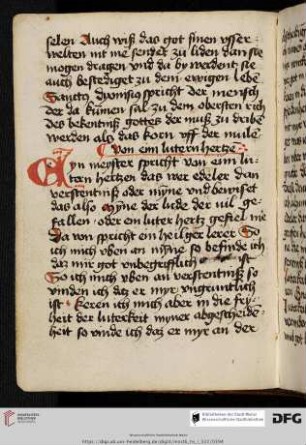 selen Auch wiß das got sinen vsser
welten nit me sendet zu liden dan sie
mogen dragen vnd da by werdent sie
auch bestediget zu dem ewigen lebē
Sanctꝰ dyonisiꝰ spricht der mensch
der da kūmen sal zu dem obersten rich
des bekentniß gottes der muß zu dribē
werden als das korn vff der mule
Von eim lutern hertze
Eyn meister spricht von eim lu
tern hertzen das wer edeler dan
verstentniß oder mȳne vnd bewiset
das also mȳne der lude der vil ge
fallen · oder ein luter hertz gefiel nie
Da von spricht ein heilger lerer So
ich mich vben an mȳne so befinde ich
daz mir got vnbegrifflich ist
So ich mich vben an verstentniß so
vinden ich daz er myr vngruntlich
ist · keren ich mich aber in die fry
heit der luterkeit myner abgescheide
heit so vinde ich daz er myr an der
UNIVERSITÄTS-
BIBLIOTHEK
HEIDELBERG
DFG